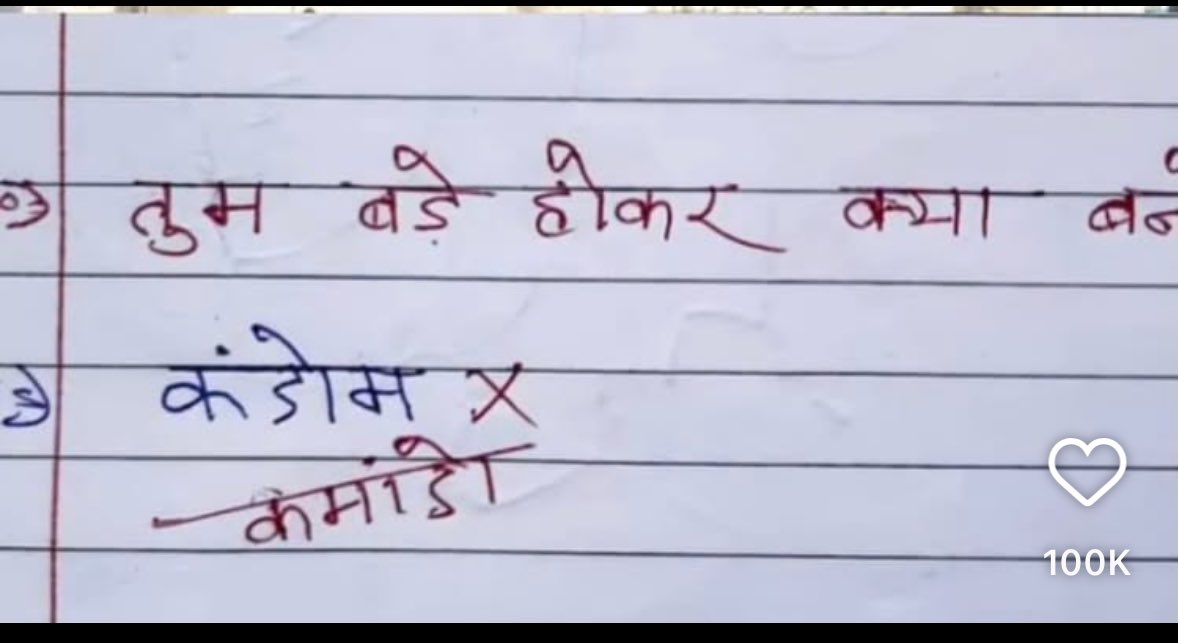 प्र) तुम बड़े होकर क्या बने
उ) कंडोम X
कमांडो
100K